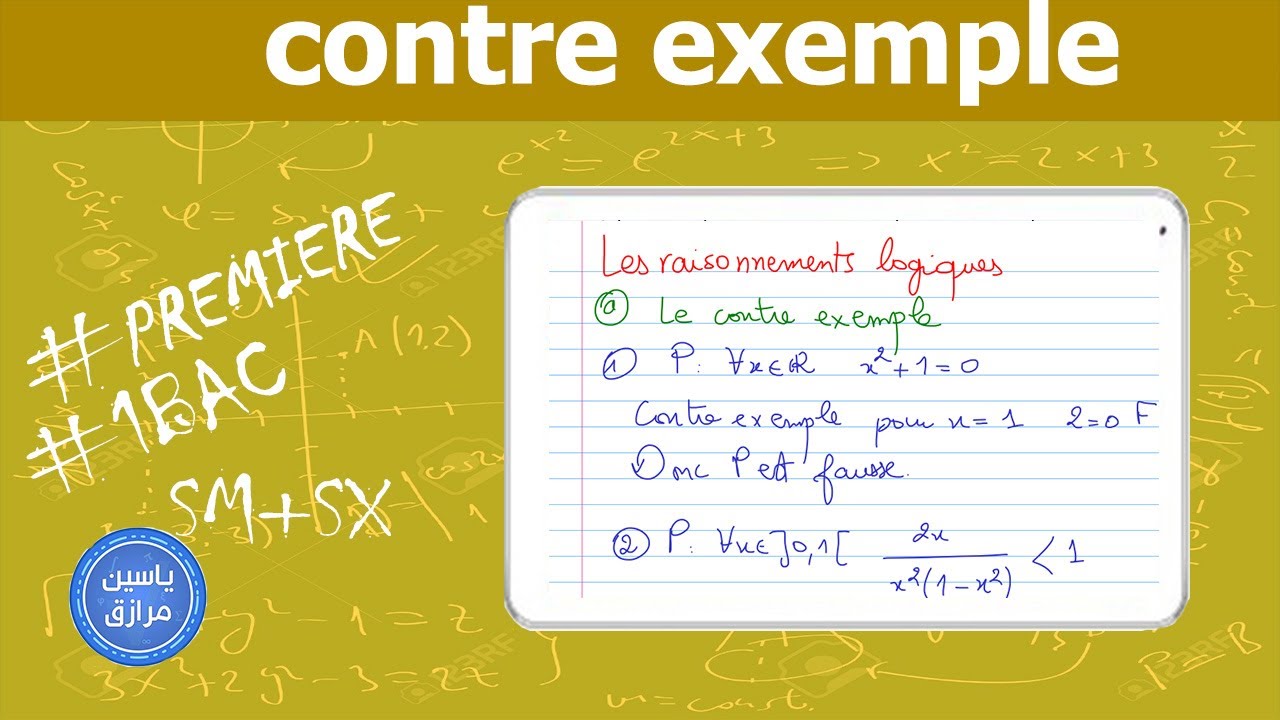 contre exemple
e^{x^2} = e^{2x+3} => x^2 = 2x+3
x/2
# PREMIERE
# 1BAC
SM+SX
A(1,2)
ياسين
مرازق
Les raisonnements logiques
ⓐ Le contre exemple
① P: ∀x∈ℝ x²+1=0
Contre exemple pour x=1 2=0 F
Donc P est fausse.
② P: ∀x∈]0,1[ 2x / x²(1-x²) < 1
3x²+2y²-3=2z
m = const.